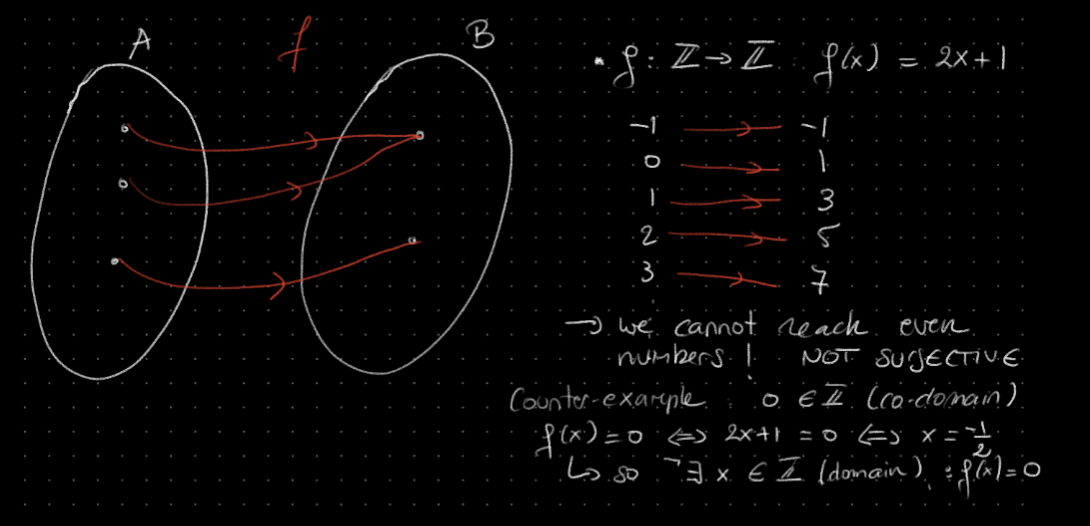 A f B
• f: ℤ → ℤ f(x) = 2x+1
-1 → -1
0 → 1
1 → 3
2 → 5
3 → 7
→ we cannot reach even
numbers! NOT SURJECTIVE
Counter-example : 0 ∈ ℤ (co-domain)
f(x) = 0 ⇔ 2x+1 = 0 ⇔ x = -1/2
↳ so ¬∃ x ∈ ℤ (domain), : f(x) = 0